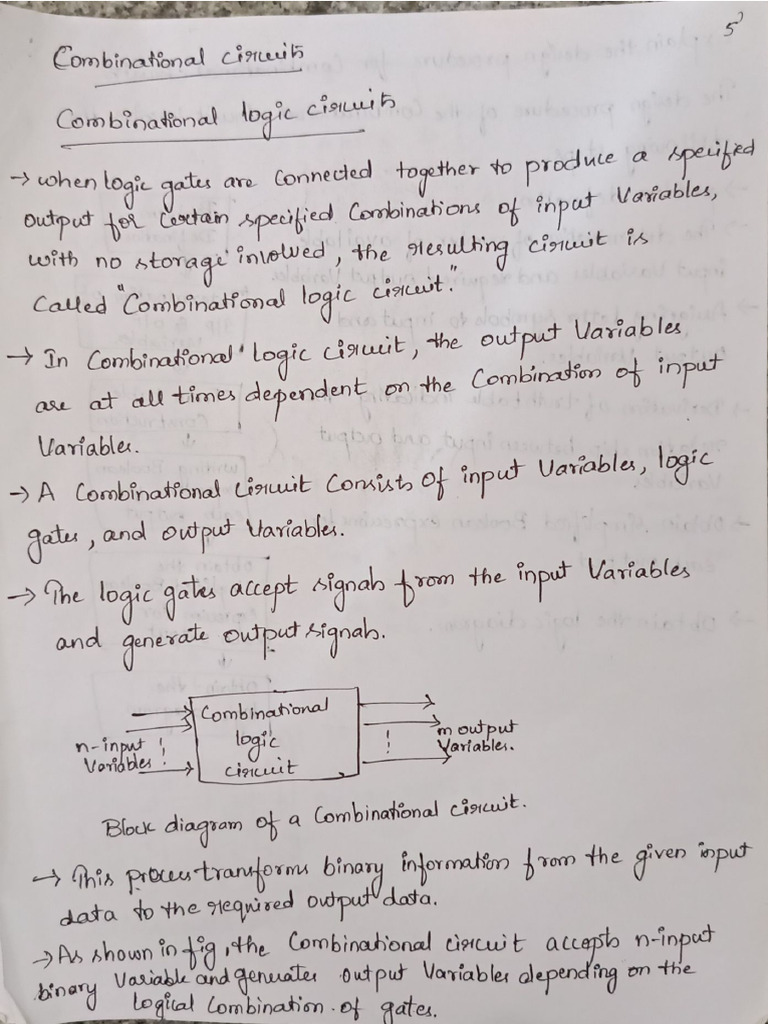 5
Combinational circuits
Combinational logic circuits
→ when logic gates are connected together to produce a specified
output for certain specified combinations of input variables,
with no storage involved, the resulting circuit is
called "Combinational logic circuit."
→ In combinational logic circuit, the output variables
are at all times dependent on the combination of input
variables.
→ A combinational circuit consists of input variables, logic
gates, and output variables.
→ The logic gates accept signals from the input variables
and generate output signals.
n-input
variables
Combinational
logic
circuit
m output
variables.
Block diagram of a combinational circuit.
→ This process transforms binary information from the given input
data to the required output data.
→ As shown in fig, the combinational circuit accepts n-input
binary variable and generates output variables depending on the
logical combination of gates.